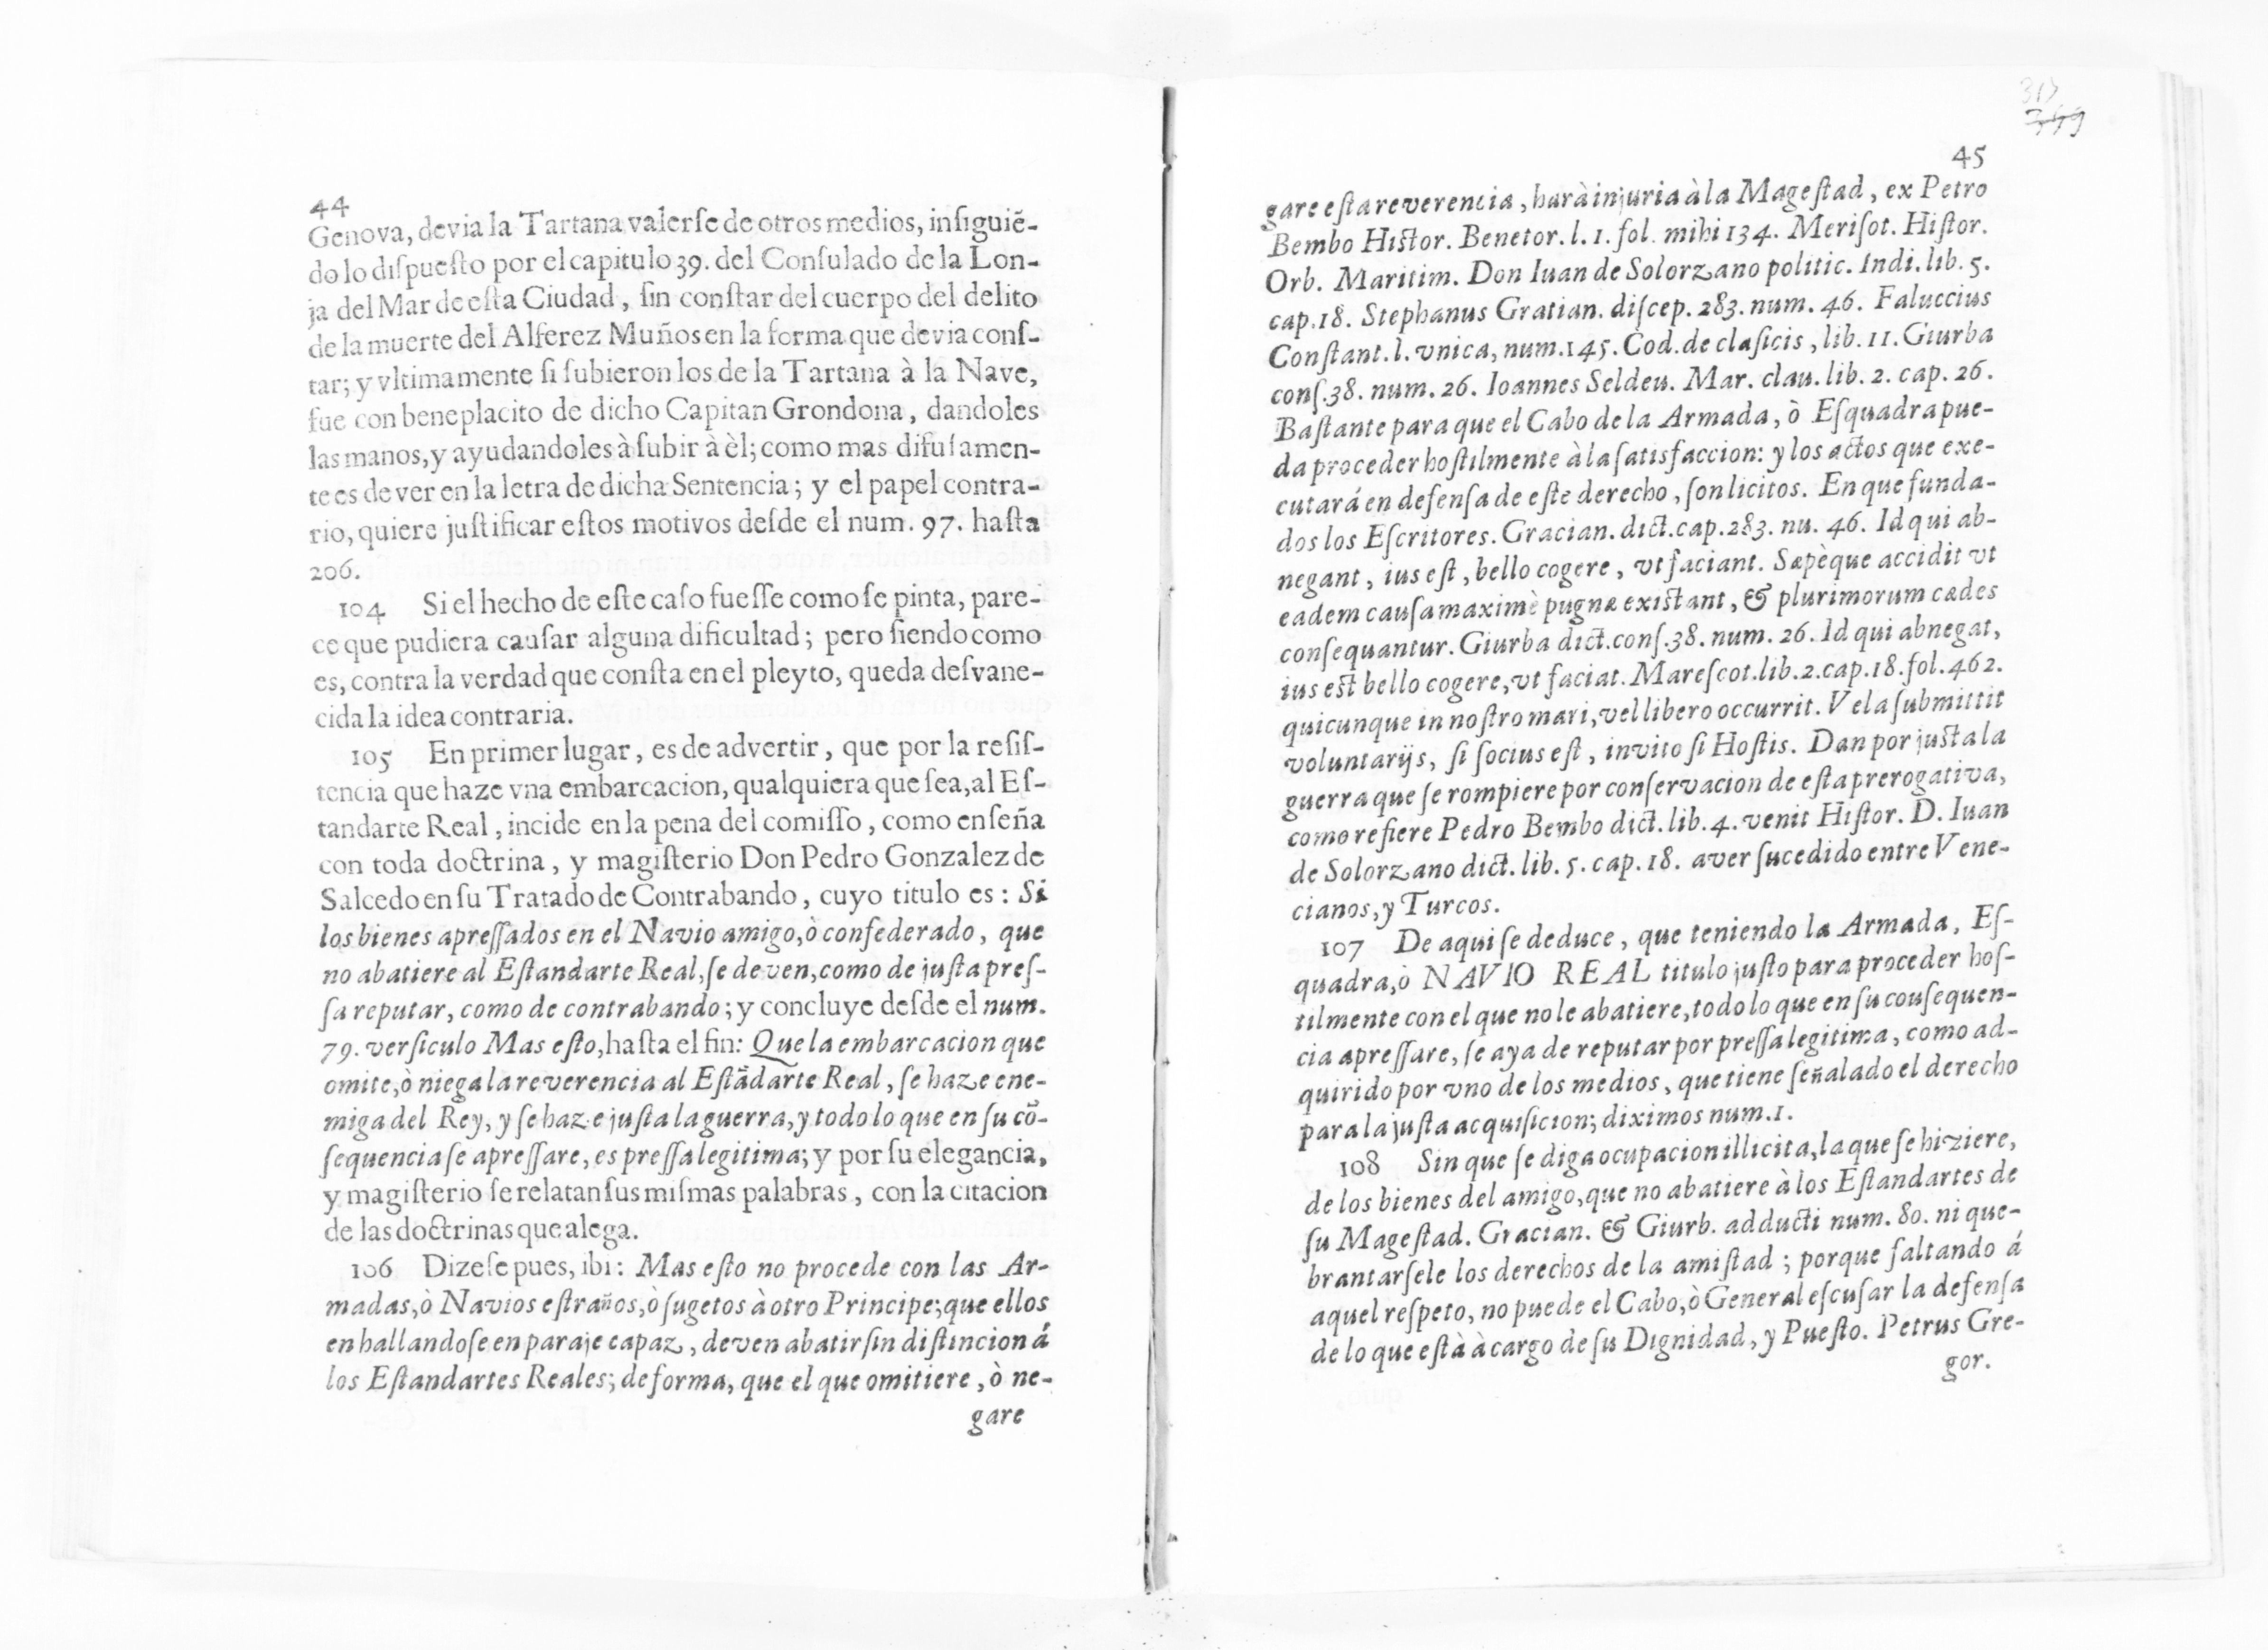 44
Genova, devia la Tartana valerſe de otros medios, inſiguiẽ-
do lo diſpueſto por el capitulo 39. del Conſulado de la Lon-
ja del Mar de eſta Ciudad, ſin conſtar del cuerpo del delito
de la muerte del Alferez Muños en la forma que devia conſ-
tar; y vltimamente ſi ſubieron los de la Tartana à la Nave,
fue con beneplacito de dicho Capitan Grondona, dandoles
las manos, y ayudandoles à ſubir à èl; como mas difuſamen-
te es de ver en la letra de dicha Sentencia; y el papel contra-
rio, quiere juſtificar eſtos motivos deſde el num. 97. haſta
206.
104 Si el hecho de eſte caſo fueſſe como ſe pinta, pare-
ce que pudiera cauſar alguna dificultad; pero ſiendo como
es, contra la verdad que conſta en el pleyto, queda deſvane-
cida la idea contraria.
105 En primer lugar, es de advertir, que por la reſiſ-
tencia que haze vna embarcacion, qualquiera que ſea, al Eſ-
tandarte Real, incide en la pena del comiſſo, como enſeña
con toda doctrina, y magiſterio Don Pedro Gonzalez de
Salcedo en ſu Tratado de Contrabando, cuyo titulo es: Si
los bienes apreſſados en el Navio amigo, ò confederado, que
no abatiere al Eſtandarte Real, ſe deven, como de juſta preſ-
ſa reputar, como de contrabando; y concluye deſde el num.
79. verſiculo Mas eſto, haſta el fin: Que la embarcacion que
omite, ò niega la reverencia al Eſtãdarte Real, ſe haze ene-
miga del Rey, y ſe haze juſta la guerra, y todo lo que en ſu cõ-
ſequencia ſe apreſſare, es preſſa legitima; y por ſu elegancia,
y magiſterio ſe relatan ſus miſmas palabras, con la citacion
de las doctrinas que alega.
106 Dizeſe pues, ibi: Mas eſto no procede con las Ar-
madas, ò Navios eſtraños, ò ſugetos à otro Principe; que ellos
en hallandoſe en paraje capaz, deven abatir ſin diſtincion á
los Eſtandartes Reales; de forma, que el que omitiere, ò ne-
gare
45
gare eſta reverencia, harà injuria à la Mageſtad, ex Petro
Bembo Hiſtor. Benetor. l. 1. fol. mihi 134. Meriſot. Hiſtor.
Orb. Maritim. Don Iuan de Solorzano politic. Indi. lib. 5.
cap. 18. Stephanus Gratian. diſcep. 283. num. 46. Faluccius
Conſtant. l. vnica, num. 145. Cod. de claſicis, lib. 11. Giurba
conſ. 38. num. 26. Ioannes Seldeu. Mar. clau. lib. 2. cap. 26.
Baſtante para que el Cabo de la Armada, ò Eſquadra pue-
da proceder hoſtilmente à la ſatisfaccion: y los actos que exe-
cutará en defenſa de eſte derecho, ſon licitos. En que funda-
dos los Eſcritores. Gracian. dict. cap. 283. nu. 46. Id qui ab-
negant, ius eſt, bello cogere, vt faciant. Sæpèque accidit vt
eadem cauſa maximè pugnæ exiſtant, & plurimorum cædes
conſequantur. Giurba dict. conſ. 38. num. 26. Id qui abnegat,
ius eſt bello cogere, vt faciat. Mareſcot. lib. 2. cap. 18. fol. 462.
quicunque in noſtro mari, vel libero occurrit. Vela ſubmittit
voluntarijs, ſi ſocius eſt, invito ſi Hoſtis. Dan por juſta la
guerra que ſe rompiere por conſervacion de eſta prerogativa,
como refiere Pedro Bembo dict. lib. 4. venit Hiſtor. D. Iuan
de Solorzano dict. lib. 5. cap. 18. aver ſucedido entre Vene-
cianos, y Turcos.
107 De aqui ſe deduce, que teniendo la Armada, Eſ-
quadra, ò NAVIO REAL titulo juſto para proceder hoſ-
tilmente con el que no le abatiere, todo lo que en ſu couſequen-
cia apreſſare, ſe aya de reputar por preſſa legitima, como ad-
quirido por vno de los medios, que tiene ſeñalado el derecho
para la juſta acquiſicion; diximos num. 1.
108 Sin que ſe diga ocupacion illicita, la que ſe hiziere,
de los bienes del amigo, que no abatiere à los Eſtandartes de
ſu Mageſtad. Gracian. & Giurb. adducti num. 80. ni que-
brantarſele los derechos de la amiſtad; porque faltando á
aquel reſpeto, no puede el Cabo, ò General eſcuſar la defenſa
de lo que eſtà à cargo de ſu Dignidad, y Pueſto. Petrus Gre-
gor.